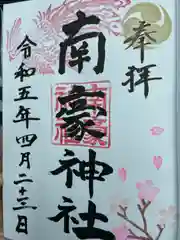 奉拝
南神社
令和五年四月二十三日